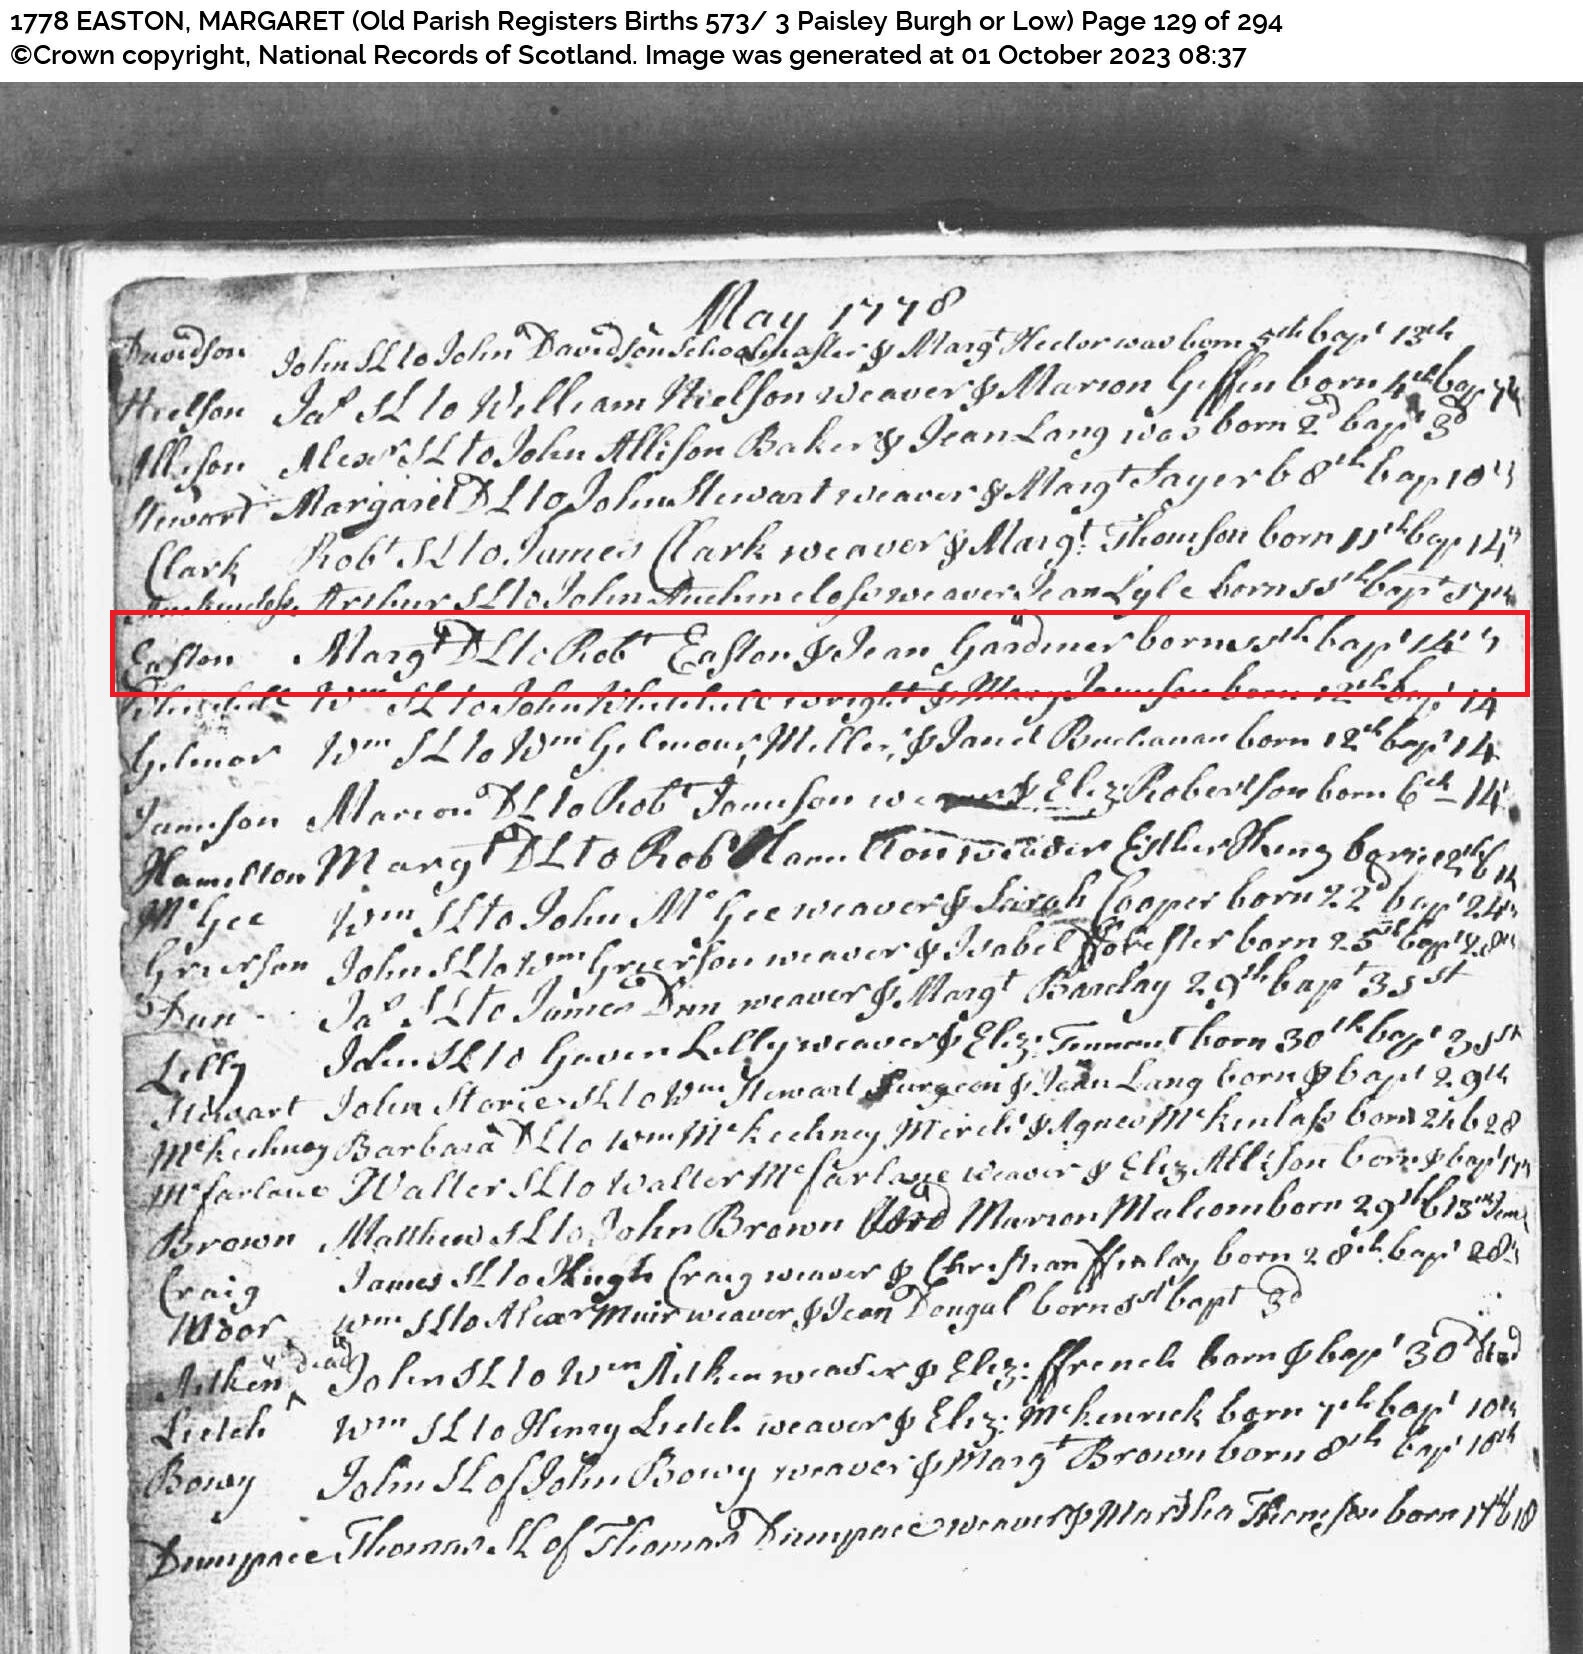 1778 EASTON, MARGARET (Old Parish Registers Births 573/ 3 Paisley Burgh or Low) Page 129 of 294
©Crown copyright, National Records of Scotland. Image was generated at 01 October 2023 08:37
May 1778
Davidson John SL to John Davidson Schoolmaster & Margt Hector was born 5th bapt 13th
Nielson Jas SL to William Nielson weaver & Marion Giffen born 4th bap 7th
Allison Alexr SL to John Allison Baker & Jean Lang was born 2d bapt 3d
Stewart Margaret DL to John Stewart weaver & Margt Sayer b 8th bap 10th
Clark Robt SL to James Clark weaver & Margt Thomson born 11th bap 14th
Arthur SL to John Auchincloss weaver Jean Lyle born 15th bapt 17th
Easton Margt DL to Robt Easton & Jean Gardner born 11th bapt 14th
Wm SL to John Whitehill wright & Mary Jamson born 12th bapt 14
Gilmor Wm SL to Wm Gilmour, Miller, & Janet Buchanan born 12th bapt 14
Jamson Marion DL to Robt Jamson & Eliz: Robertson born 6th - 14
Hamilton Margt DL to Robt Hamilton weaver Esther King born 12th b 14
McGee Wm SL to John McGee weaver & Sarah Cooper born 22d bapt 24th
Grierson John SL to Wm Grierson weaver & Isabel fforester born 25th bapt 28th
Dun Jas SL to James Dun weaver & Margt Barclay 29th bapt 31st
Lilly John SL to Gaven Lilly weaver & Eliz: Tennant born 30th bapt 31st
Stewart John Storie SL to Wm Stewart Surgeon & Jean Lang born & bapt 29th
McKechney Barbara DL to Wm McKechney Mercht & Agnes McKinlass born 24 b 28
McFarlane Walter SL to Walter McFarlane weaver & Eliz Allison born & bapt 17th
Brown Matthew SL to John Brown Marion Malcom born 29th b 13th June
Craig James SL to Hugh Craig weaver & Christian ffinlay born 28th bapt 28th
Moor Wm SL to Alexr Muir weaver & Jean Dougal born 1st bapt 3d
Aitken dead John SL to Wm Aitken weaver & Eliz: ffrench born & bapt 30th dead
Lietch Wm SL to Henry Lietch weaver & Eliz: McKenrick born 7th bapt 10th
Bowy John SL of John Bowy weaver & Margt Brown born 8th bapt 10th
Dunipace Thomas SL of Thomas Dunipace weaver & Martha Thomson born 17th b 18